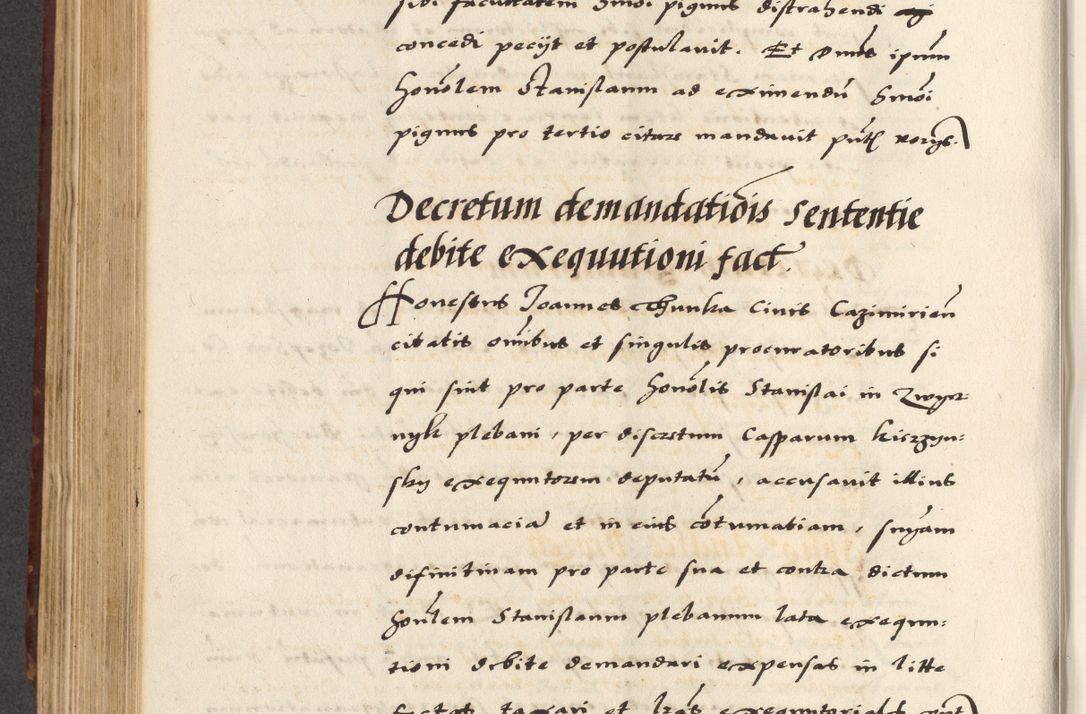 sibi facultatem Smoi pignus distrahendi
concedi peciit et postulavit. Et Dnus ipsum
Honolem Stanislaum ad eximendu Smoi
pignus pro tertio citare mandavit pntibus
Decretum demandatiois sententie
debite exequutioni fact.
Honestus Joannes Thunka Civis Cazimirien
citatis omibus et singulis procuratoribus si
qui sint pro parte honolis Stanislai in Zwyer-
nyk plebani, per discretum Casparum kierzyn:
sky exequutorem deputatu, accusavit illius
contumacia et in eius cotumatiam, snyam
difinitivam pro parte sua et contra dictum
honlem Stanislaum plebanum lata exequu:
tioni debite demandari expensas in litte
factas taxari et lras